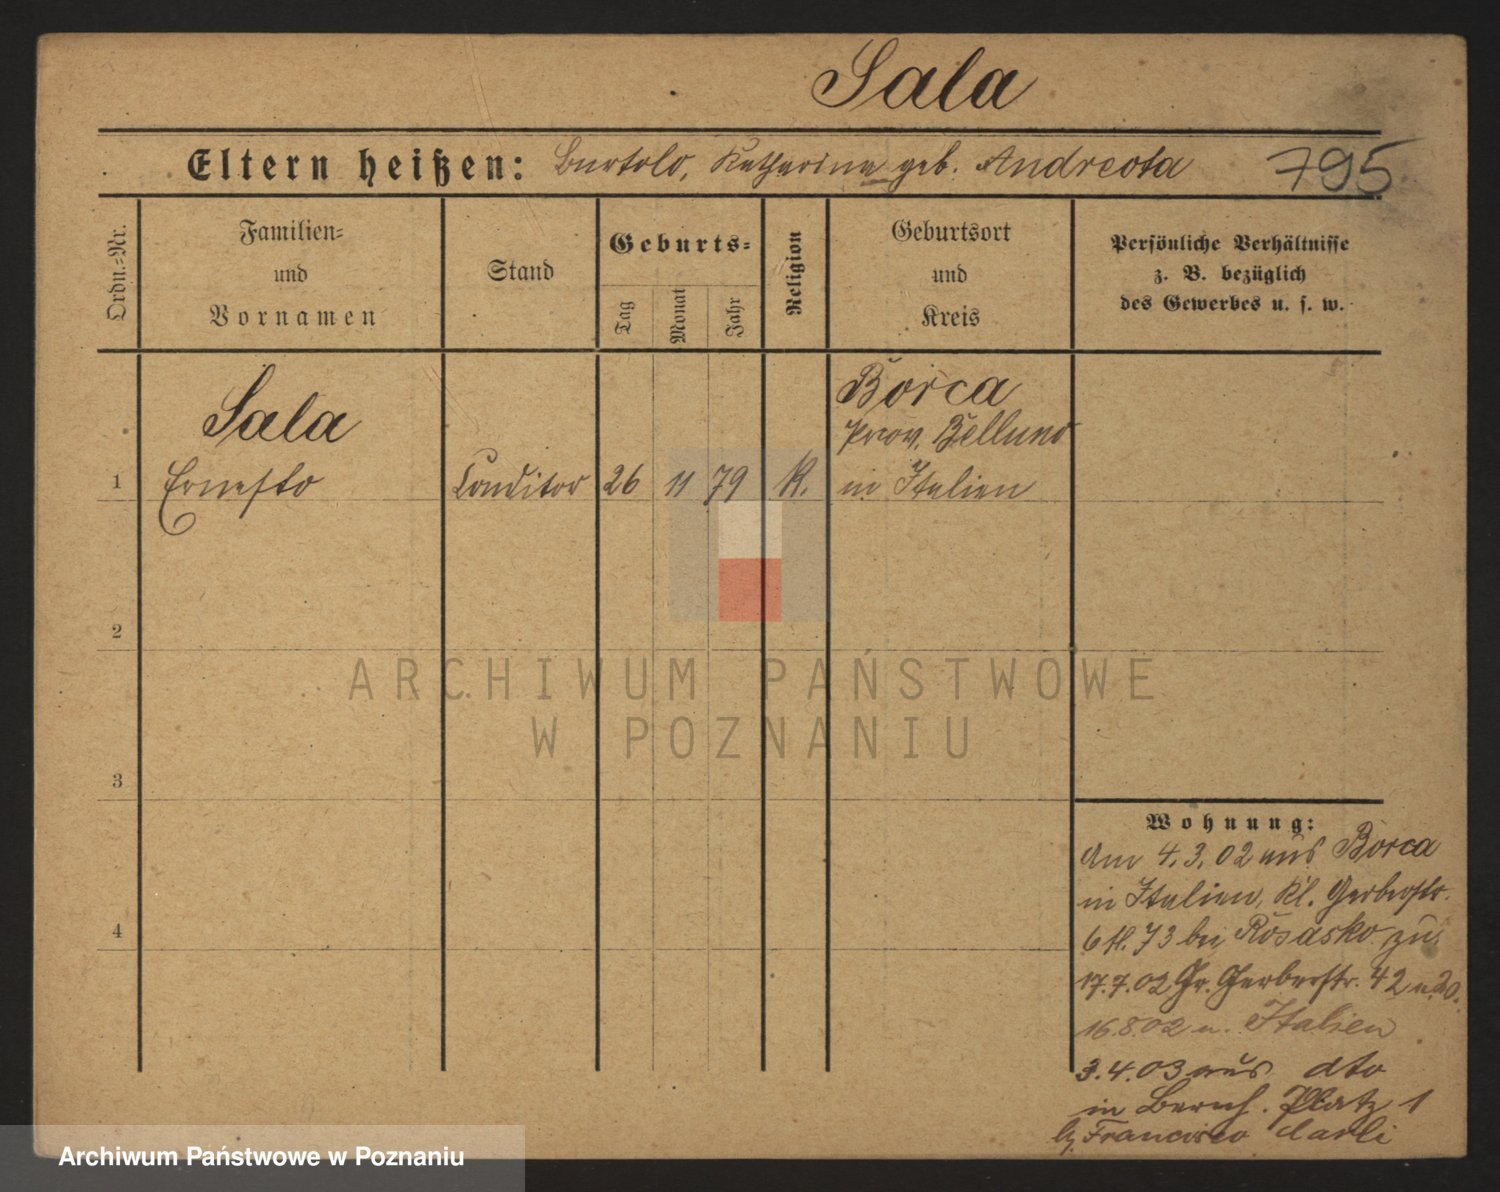 Sala
Eltern heißen: Bartolo, Katharina geb. Andreota
795
Ordn.=Nr.
Familien=
und
Vornamen
Stand
Geburts=
Tag
Monat
Jahr
Religion
Geburtsort
und
Kreis
Persönliche Verhältnisse
z. B. bezüglich
des Gewerbes u. s. w.
Sala
Borca
Prov. Belluno
1 Ernesto Conditor 26 11 79 K. in Italien
2
ARCHIWUM PAŃSTWOWE
W POZNANIU
3
4
Wohnung:
Am 4.3.02 aus Borca
in Italien, Kl. Gerberstr.
6 73 bei Rosasko zu
17.7.02 Gr. Gerberstr. 42
16.8.02 n. Italien
3.4.03 aus dto
in Bernh. Platz 1
b. Francisco Carli
Archiwum Państwowe w Poznaniu